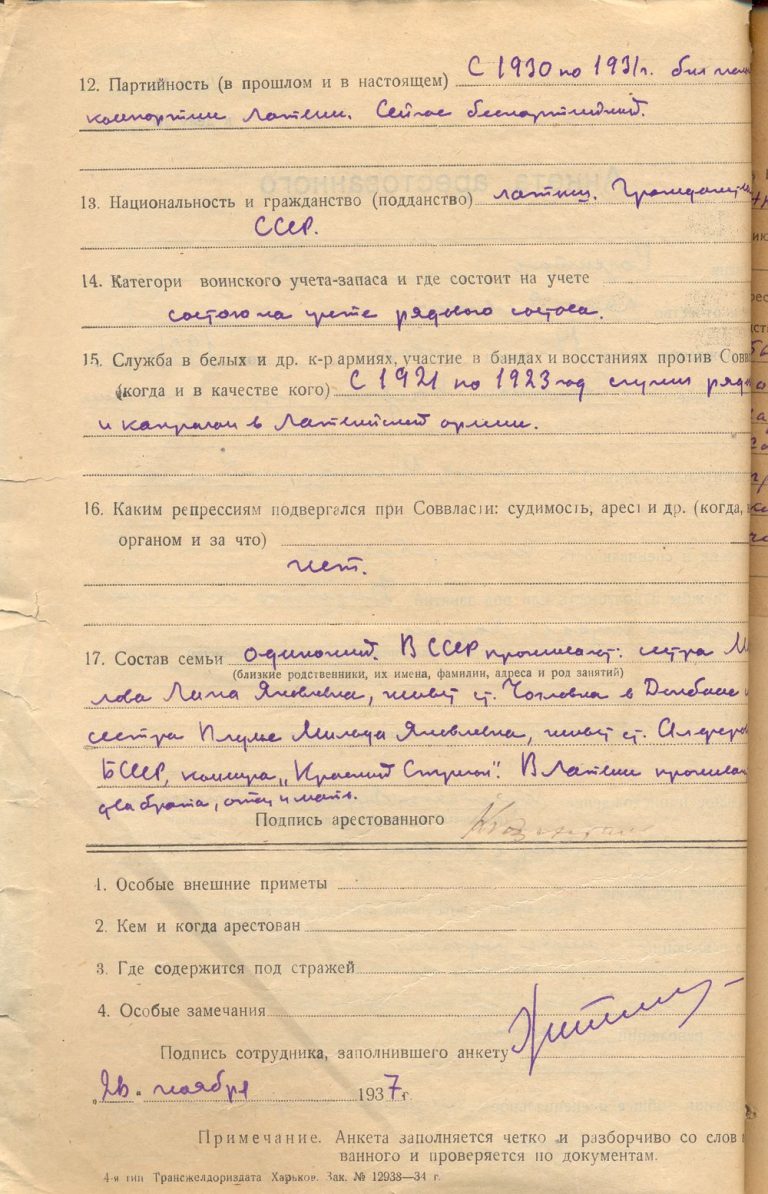 12. Партийность (в прошлом и в настоящем) С 1930 по 1931 г. был
компартии Латвии. Сейчас беспартийный.
13. Национальность и гражданство (подданство) латыш. Граждан
СССР.
14. Категори воинского учета-запаса и где состоит на учете
состою на учете рядового состава.
15. Служба в белых и др. к-р армиях, участие в бандах и восстаниях против Сов
(когда и в качестве кого) С 1921 по 1923 год служил ряд
и капралом в Латвийской армии.
16. Каким репрессиям подвергался при Соввласти: судимость, арест и др. (когда,
органом и за что)
нет.
17. Состав семьи одинокий. В СССР проживают: сестра
(близкие родственники, их имена, фамилии, адреса и род занятий)
лова Лина Яковлевна, живет ст. в Донбассе
сестра Милда Яковлевна, живет ст.
БССР, коммуна „Красный Стрелок". В Латвии прожива
два брата, отец и мать.
Подпись арестованного
1. Особые внешние приметы
2. Кем и когда арестован
3. Где содержится под стражей
4. Особые замечания
Подпись сотрудника, заполнившего анкету
„26" ноября 1937 г.
Примечание. Анкета заполняется четко и разборчиво со слов
ванного и проверяется по документам.
4-я тип Трансжелдориздата Харьков. Зак. № 12938—34 г.